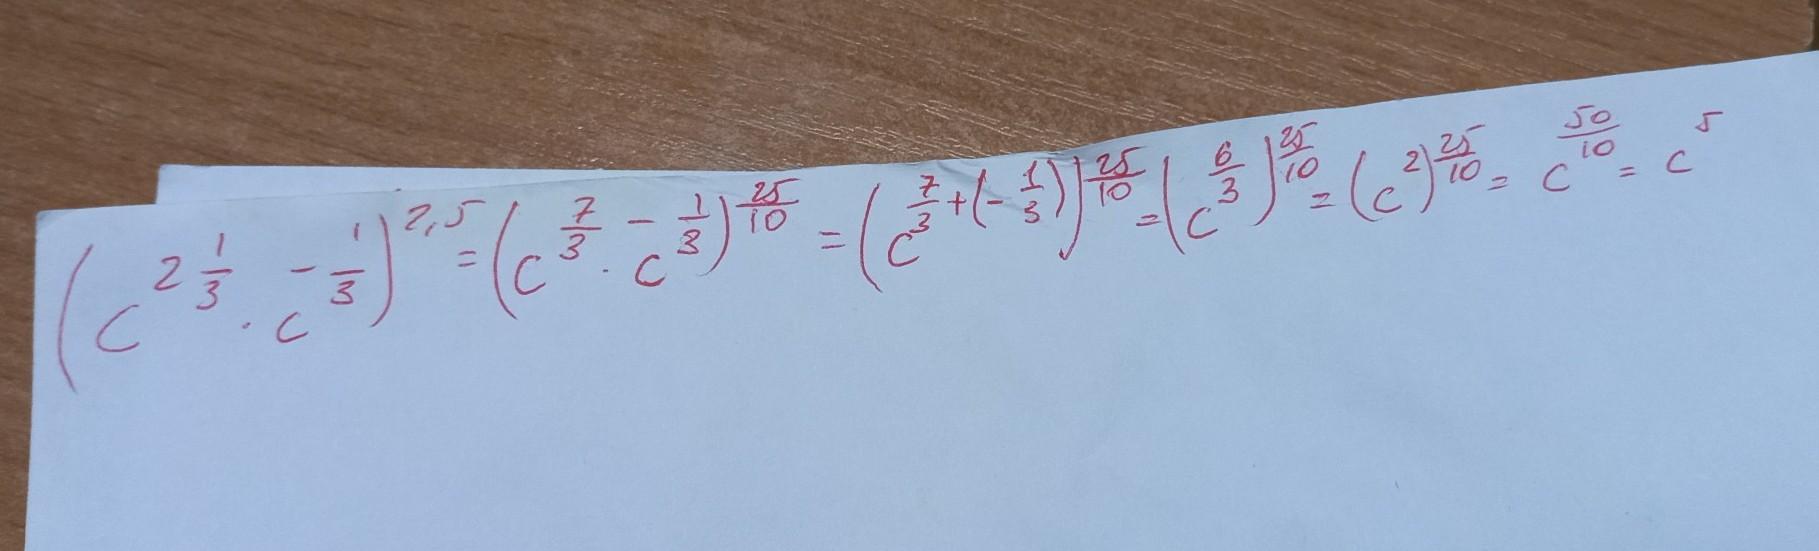 (c^{2\frac{1}{3}} \cdot c^{-\frac{1}{3}})^{2,5} = (c^{\frac{7}{3}} \cdot c^{-\frac{1}{3}})^{\frac{25}{10}} = (c^{\frac{7}{3}+(-\frac{1}{3})})^{\frac{25}{10}} = (c^{\frac{6}{3}})^{\frac{25}{10}} = (c^{2})^{\frac{25}{10}} = c^{\frac{50}{10}} = c^{5}